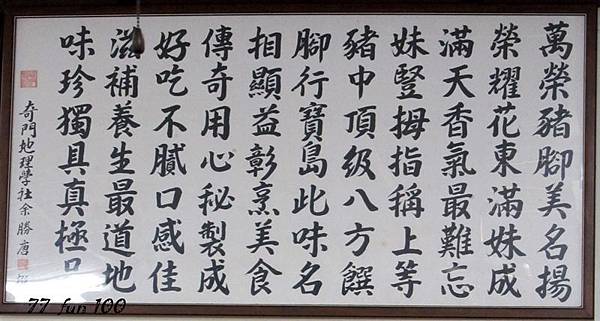 萬榮豬腳美名揚
榮耀花東滿妹成
滿天香氣最難忘
妹豎拇指稱上等
豬中頂级八方饌
腳行寶島此味名
相顯益彰烹美食
傳奇用心秘製成
好吃不膩口感佳
滋補養生最道地
味珍獨具真極品
奇門地理學社余勝唐
77 fun 100